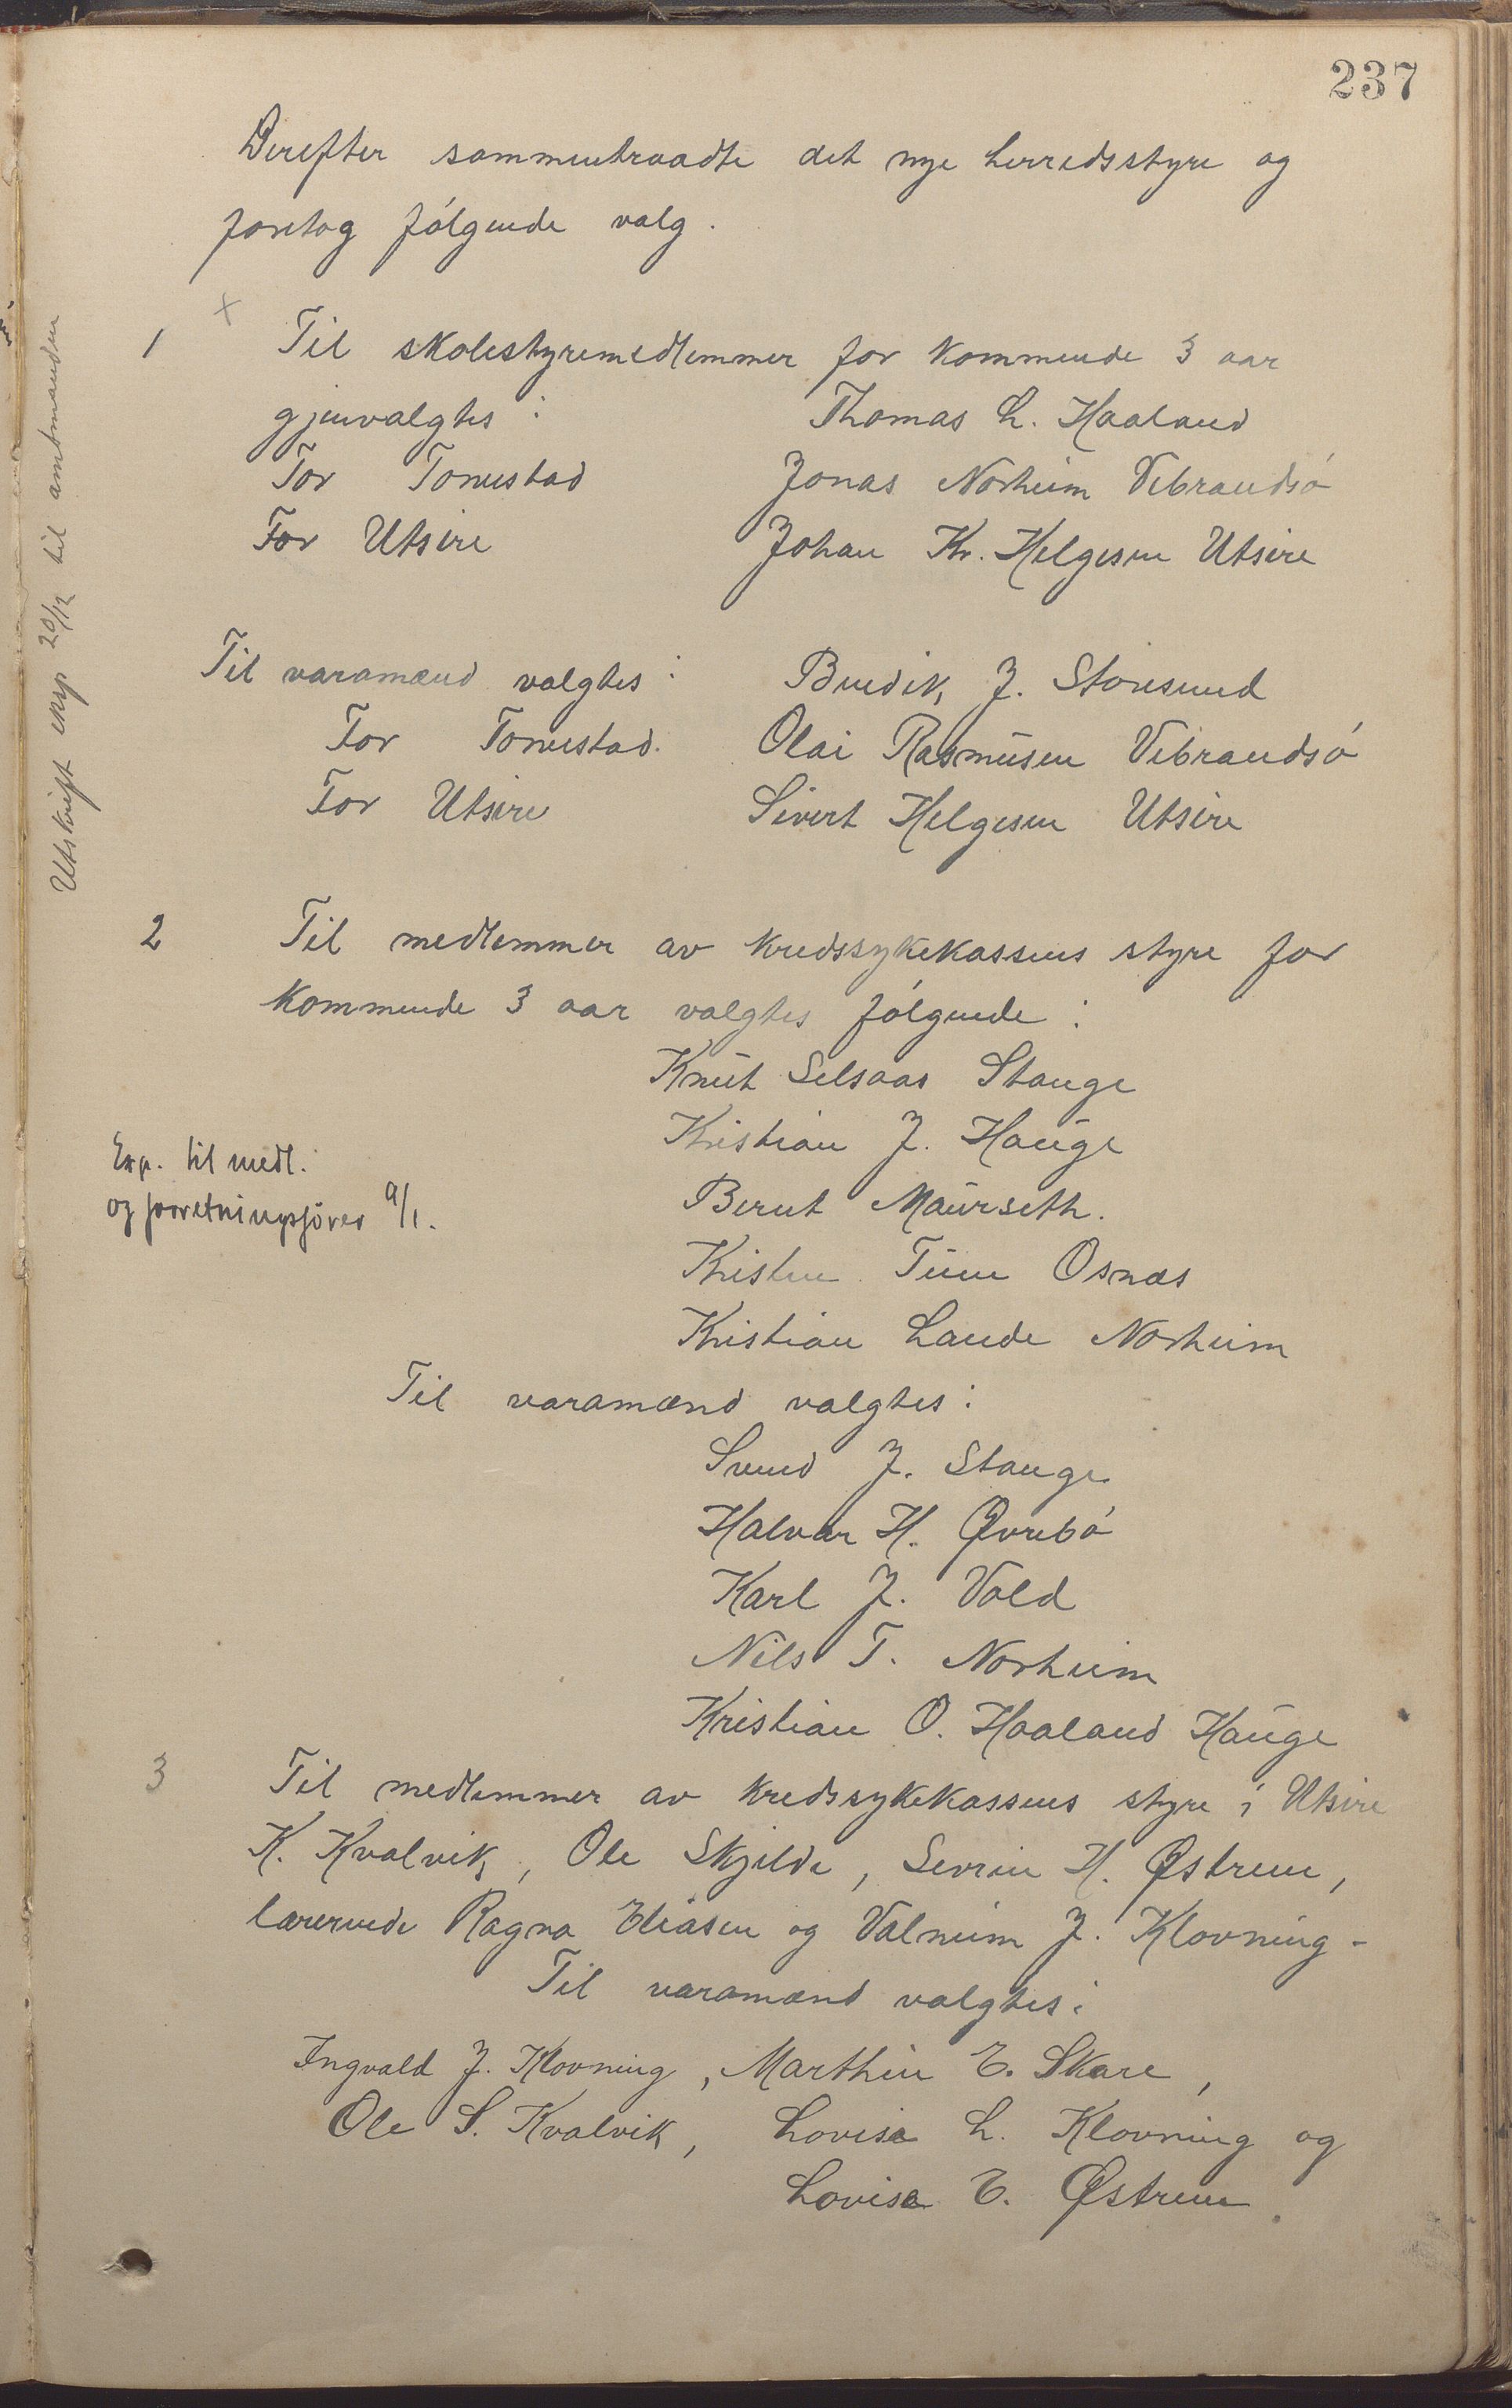 237
Derefter sammentraadte det nye herredsstyre og
foretog følgende valg.
Utskrift eksp 20/12 til amtmanden
1 x Til skolestyremedlemmer for kommende 3 aar
gjenvalgtes : Thomas L. Haaland
For Torvestad Jonas Norheim Vibrandsø
For Utsire Johan Kr. Helgesen Utsire
Til varamænd valgtes : Bendik J. Storesund
For Torvestad. Olai Rasmusen Vibrandsø
For Utsire Sivert Helgesen Utsire
2 Til medlemmer av kredssykekassens styre for
kommende 3 aar valgtes følgende :
Knut Selsaas Stange
Kristian J. Hauge
Exp. til medl.
og forretningsfører 9/1.
Bernt Maurseth.
Kristen Tuen Osnæs
Kristian Lande Norheim
Til varamænd valgtes :
Svend J. Stange
Halvar H. Øvrebø
Karl J. Vold
Nils T. Norheim
Kristian O. Haaland Hauge
3 Til medlemmer av kredssykekassens styre i Utsire
K. Kvalvik, Ole Skjelde, Sevrin H. Østrem,
lærerinde Ragna Eliasen og Valneim J. Klovning -
Til varamænd valgtes :
Ingvald J. Klovning, Marthin E. Skare,
Ole S. Kvalvik, Lovise L. Klovning og
Lovise E. Østrem.